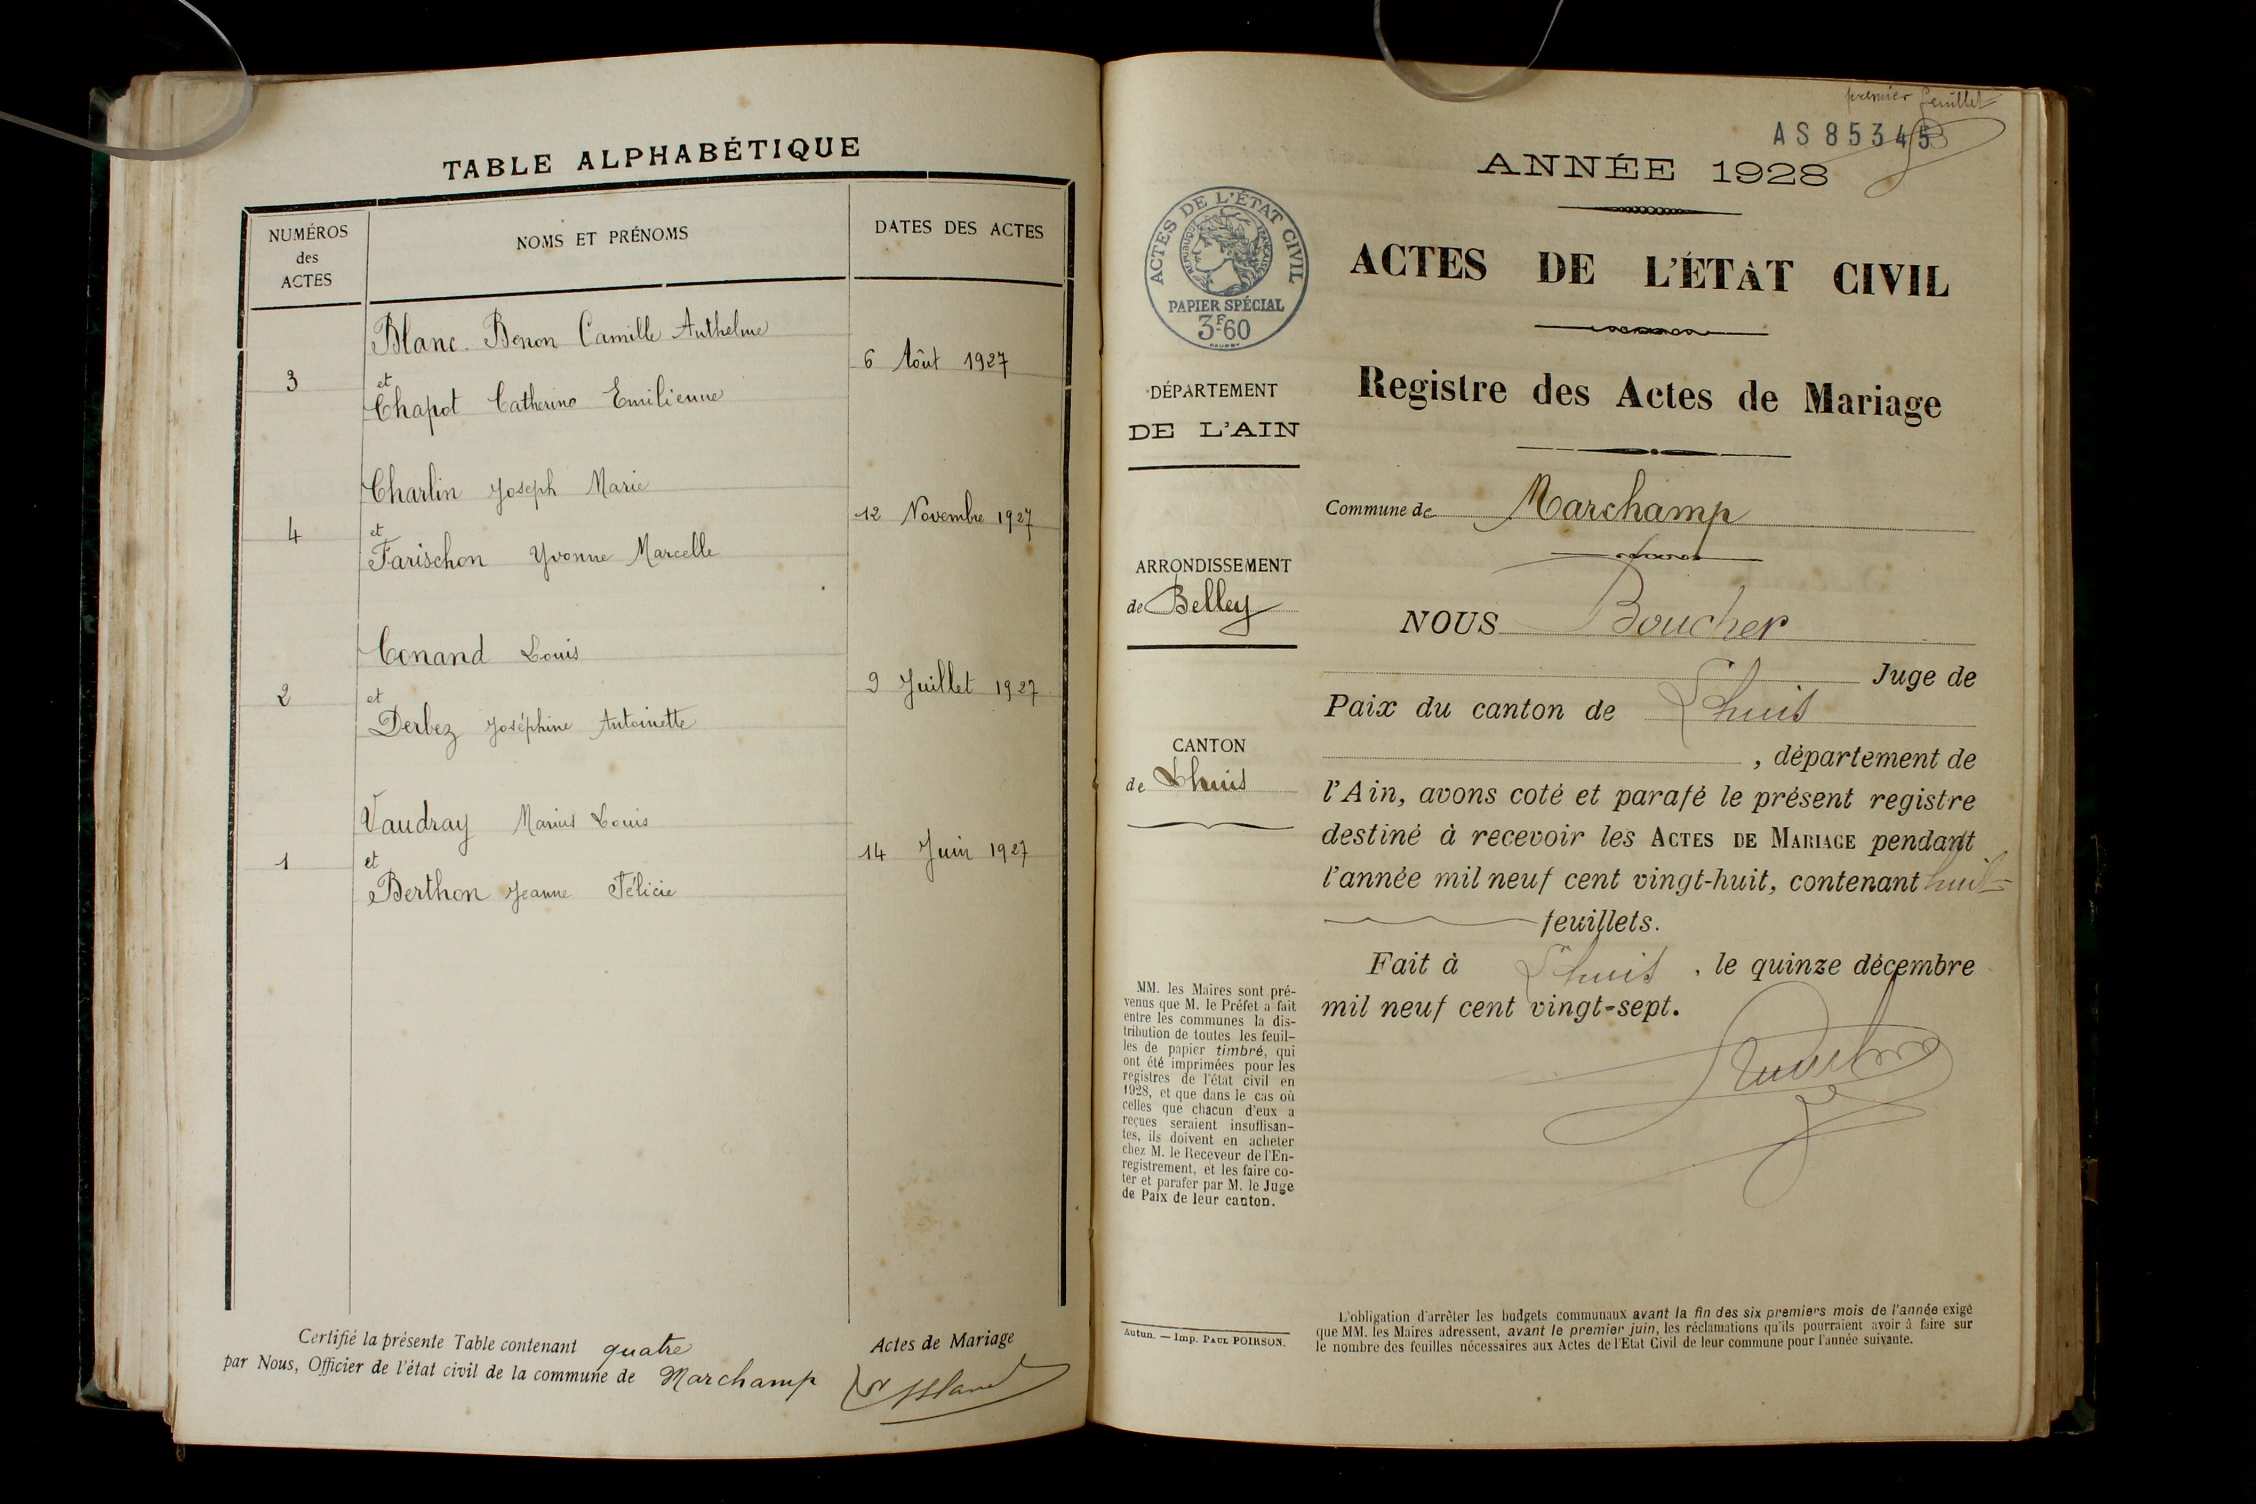 TABLE ALPHABÉTIQUE
NUMÉROS
des
ACTES
NOMS ET PRÉNOMS
DATES DES ACTES
Blanc Benon Camille Anthelme
6 Août 1927
3
et
Chapot Catherine Emilienne
Charlin Joseph Marie
12 Novembre 1927
4
et
Farischon Yvonne Marcelle
Conand Louis
9 Juillet 1927
2
et
Derbez Joséphine Antoinette
Vaudray Marius Louis
14 Juin 1927
1
et
Berthon Jeanne Félicie
Certifié la présente Table contenant quatre Actes de Mariage
par Nous, Officier de l'état civil de la commune de Marchamp
premier feuillet
AS 85345
ANNÉE 1928
ACTES DE L'ÉTAT CIVIL
RÉPUBLIQUE FRANÇAISE
PAPIER SPÉCIAL
3F60
ACTES DE L'ÉTAT CIVIL
Registre des Actes de Mariage
DÉPARTEMENT
DE L'AIN
Commune de Marchamp
ARRONDISSEMENT
de Belley
NOUS Boucher
Juge de
Paix du canton de Lhuis
, département de
CANTON
de Lhuis
l'Ain, avons coté et parafé le présent registre
destiné à recevoir les ACTES DE MARIAGE pendant
l'année mil neuf cent vingt-huit, contenant huit
feuillets.
Fait à Lhuis, le quinze décembre
mil neuf cent vingt-sept.
MM. les Maires sont pré-
venus que M. le Préfet a fait
entre les communes la dis-
tribution de toutes les feuil-
les de papier timbré, qui
ont été imprimées pour les
registres de l'état civil en
1928, et que dans le cas où
celles que chacun d'eux a
reçues seraient insuffisan-
tes, ils doivent en acheter
chez M. le Receveur de l'En-
registrement, et les faire co-
ter et parafer par M. le Juge
de Paix de leur canton.
Autun. — Imp. PAUL POIRSON.
L'obligation d'arrêter les budgets communaux avant la fin des six premiers mois de l'année exige
que MM. les Maires adressent, avant le premier juin, les réclamations qu'ils pourraient avoir à faire sur
le nombre des feuilles nécessaires aux Actes de l'Etat Civil de leur commune pour l'année suivante.